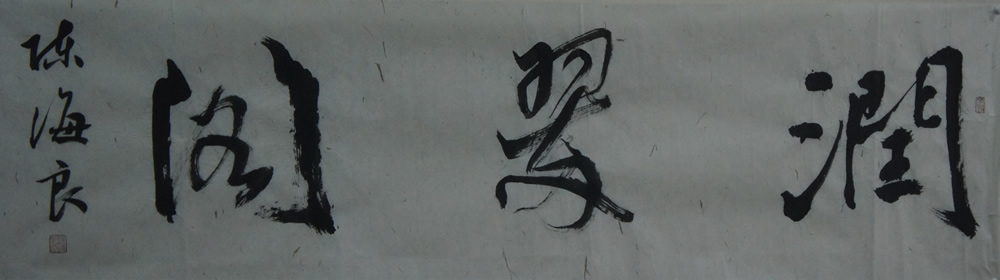 潤翠阁
陈海良